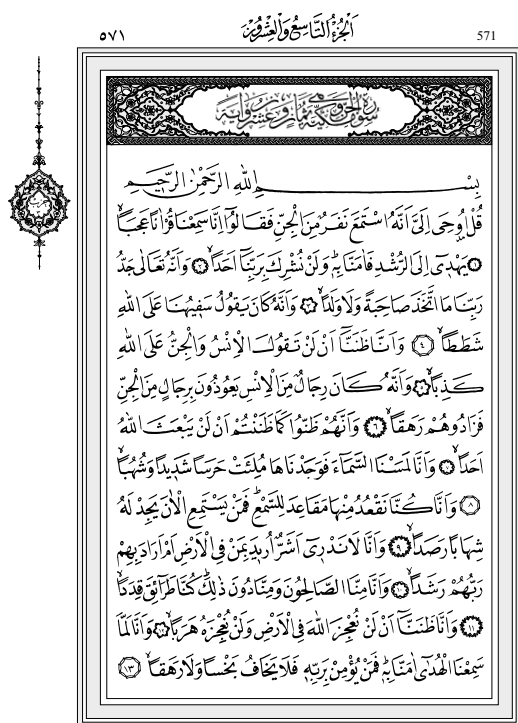 ٥٧١ اَلْجُزْءُ التَّاسِعُ وَالْعِشْرُونَ 571
سُورَةُ الْجِنِّ مَكِّيَّةٌ وَهِيَ ثَمَانٍ وَعِشْرُونَ اٰيَةً
بِسْمِ اللّٰهِ الرَّحْمٰنِ الرَّحٖيمِ
قُلْ اُو۫حِيَ اِلَيَّ اَنَّهُ اسْتَمَعَ نَفَرٌ مِنَ الْجِنِّ فَقَالُٓوا اِنَّا سَمِعْنَا قُرْاٰناً عَجَباًۙ
﴿١﴾ يَهْدٖٓي اِلَى الرُّشْدِ فَاٰمَنَّا بِهٖۜ وَلَنْ نُشْرِكَ بِرَبِّنَٓا اَحَداًۙ ﴿٢﴾ وَاَنَّهُ تَعَالٰى جَدُّ
رَبِّنَا مَا اتَّخَذَ صَاحِبَةً وَلَا وَلَداًۙ ﴿٣﴾ وَاَنَّهُ كَانَ يَقُولُ سَفٖيهُنَا عَلَى اللّٰهِ
شَطَطاًۙ ﴿٤﴾ وَاَنَّا ظَنَنَّٓا اَنْ لَنْ تَقُولَ الْاِنْسُ وَالْجِنُّ عَلَى اللّٰهِ
كَذِباًۙ ﴿٥﴾ وَاَنَّهُ كَانَ رِجَالٌ مِنَ الْاِنْسِ يَعُوذُونَ بِرِجَالٍ مِنَ الْجِنِّ
فَزَادُوهُمْ رَهَقاًۙ ﴿٦﴾ وَاَنَّهُمْ ظَنُّوا كَمَا ظَنَنْتُمْ اَنْ لَنْ يَبْعَثَ اللّٰهُ
اَحَداًۙ ﴿٧﴾ وَاَنَّا لَمَسْنَا السَّمَٓاءَ فَوَجَدْنَاهَا مُلِئَتْ حَرَساً شَدٖيداً وَشُهُباًۙ
﴿٨﴾ وَاَنَّا كُنَّا نَقْعُدُ مِنْهَا مَقَاعِدَ لِلسَّمْعِۜ فَمَنْ يَسْتَمِعِ الْاٰنَ يَجِدْ لَهُ
شِهَاباً رَصَداًۙ ﴿٩﴾ وَاَنَّا لَا نَدْرٖٓي اَشَرٌّ اُرٖيدَ بِمَنْ فِي الْاَرْضِ اَمْ اَرَادَ بِهِمْ
رَبُّهُمْ رَشَداًۙ ﴿١٠﴾ وَاَنَّا مِنَّا الصَّالِحُونَ وَمِنَّا دُونَ ذٰلِكَۜ كُنَّا طَرَٓائِقَ قِدَداًۙ
﴿١١﴾ وَاَنَّا ظَنَنَّٓا اَنْ لَنْ نُعْجِزَ اللّٰهَ فِي الْاَرْضِ وَلَنْ نُعْجِزَهُ هَرَباًۙ ﴿١٢﴾ وَاَنَّا لَمَّا
سَمِعْنَا الْهُدٰٓى اٰمَنَّا بِهٖۜ فَمَنْ يُؤْمِنْ بِرَبِّهٖ فَلَا يَخَافُ بَخْساً وَلَا رَهَقاًۙ ﴿١٣﴾